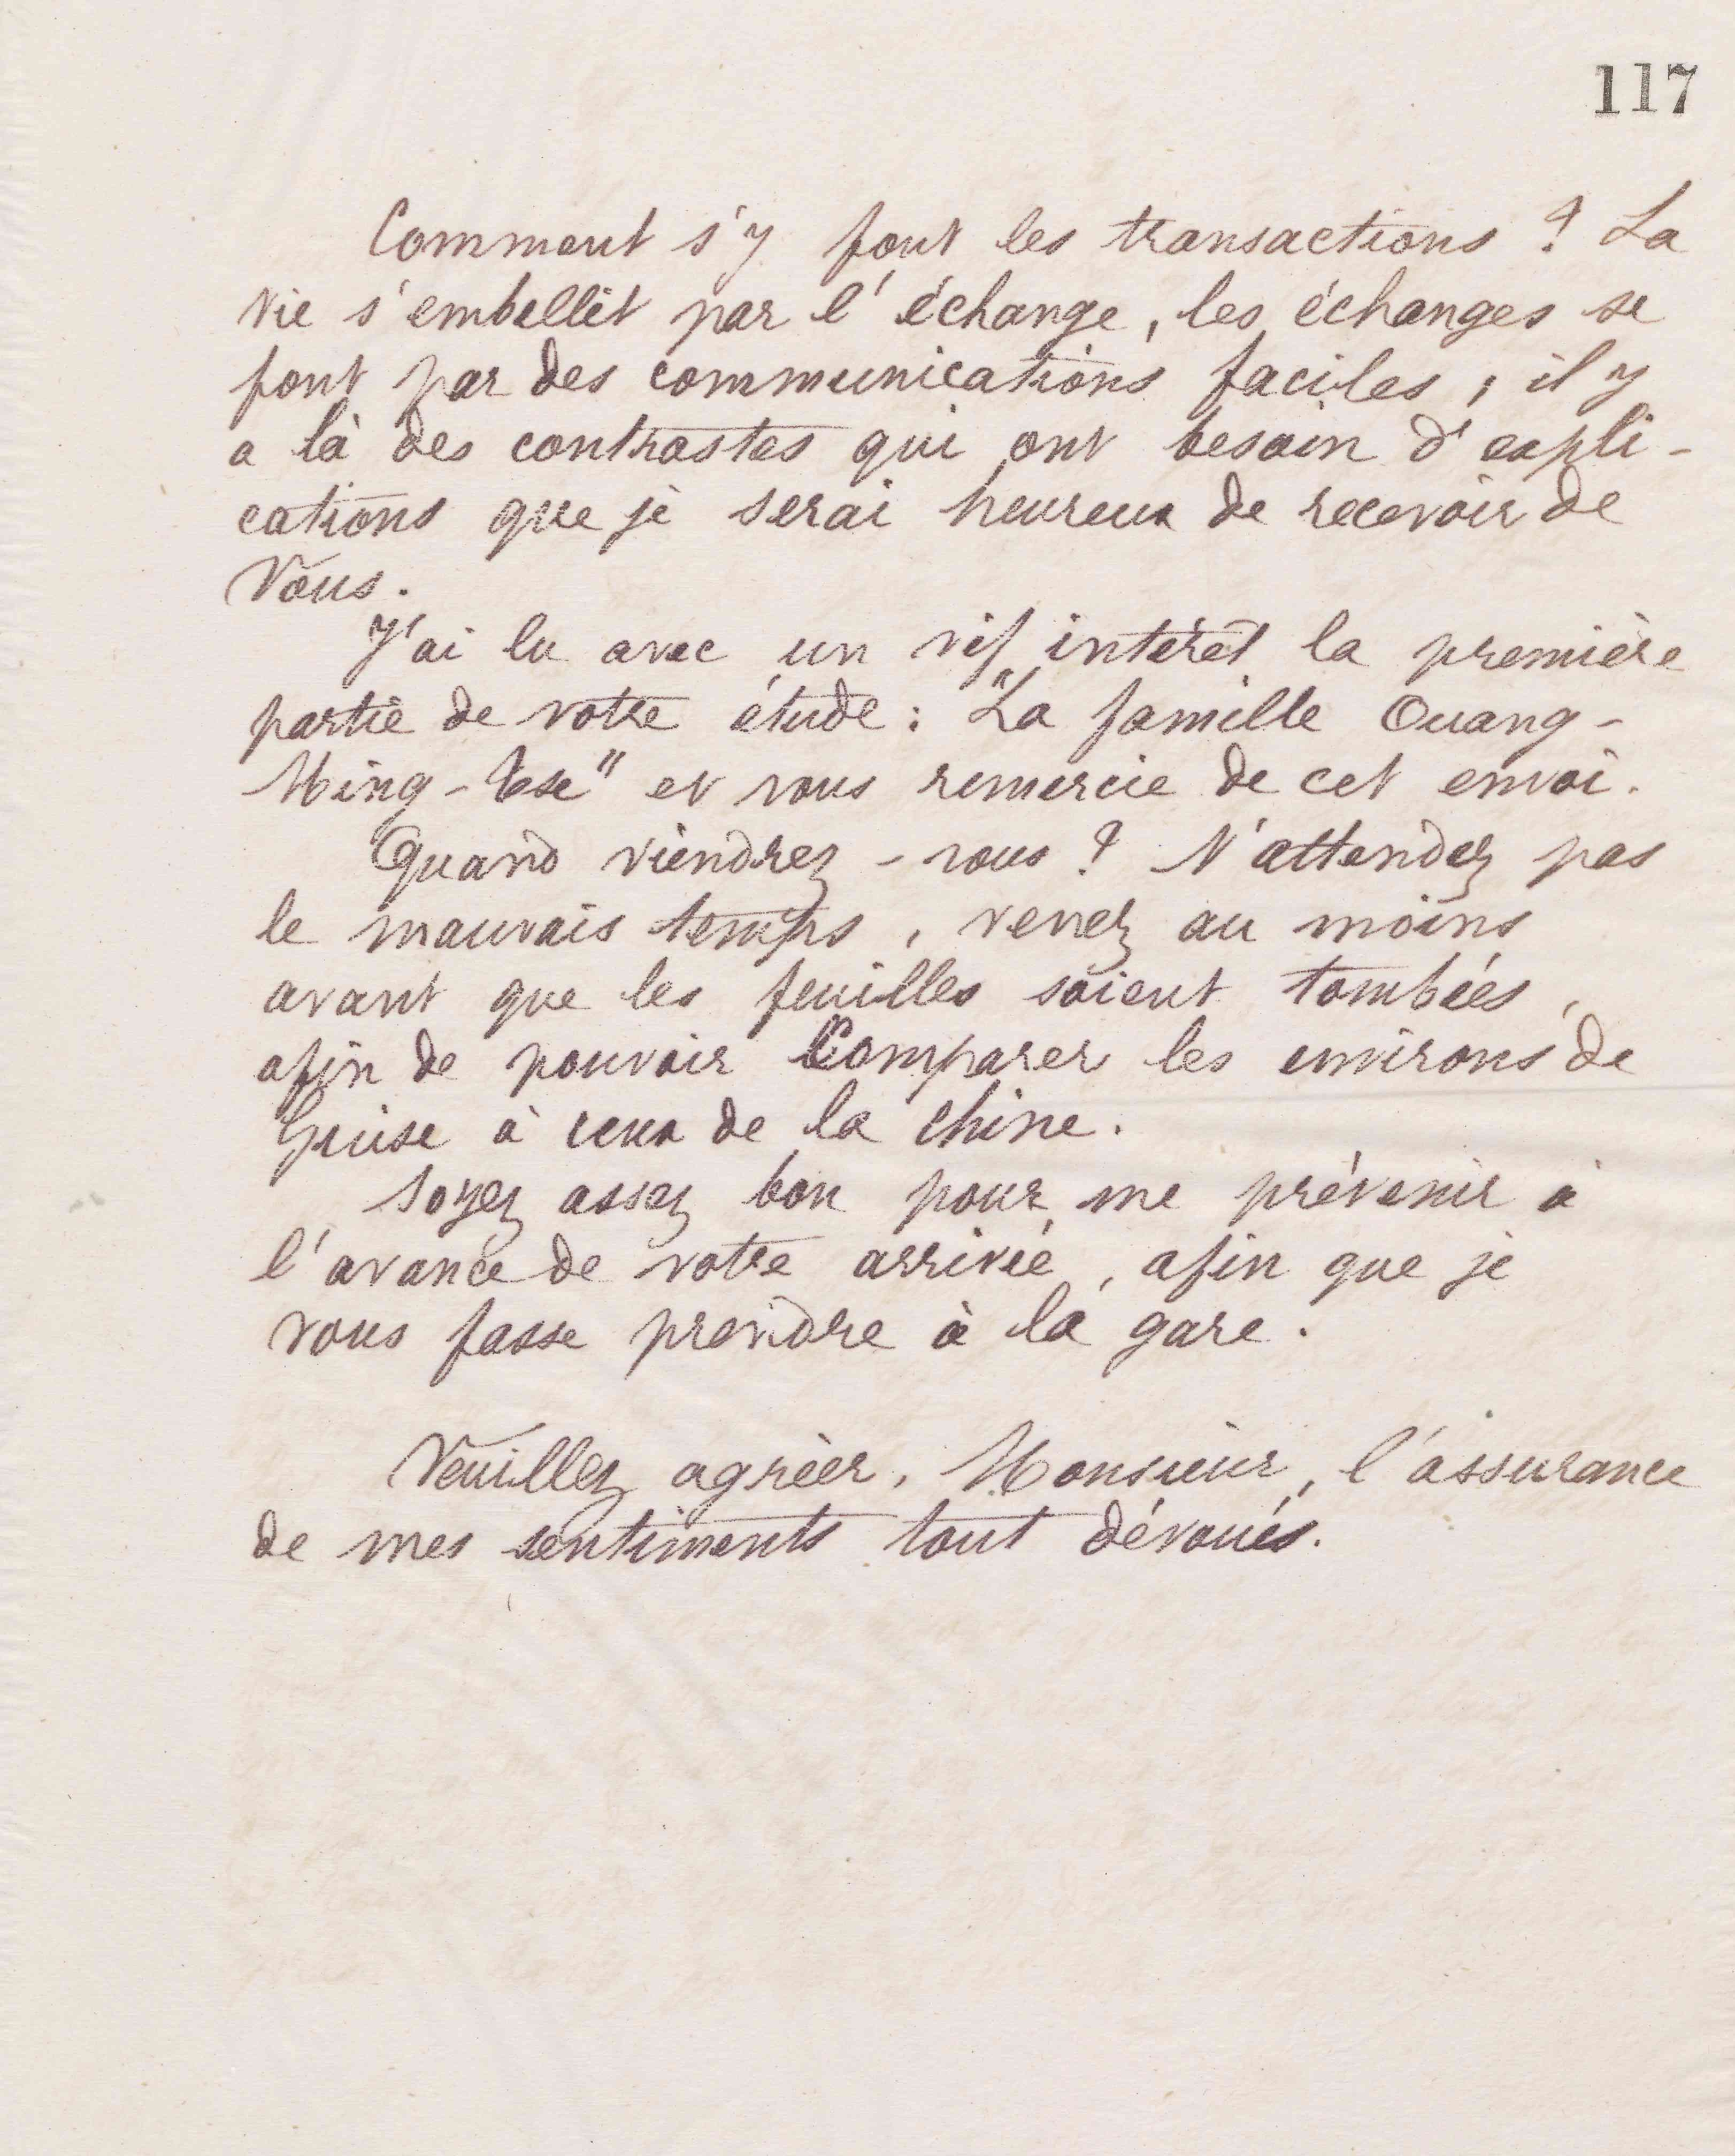 117
Comment s'y font les transactions ? La
vie s'embellit par l'échange, les échanges se
font par des communications faciles ; il y
a là des contrastes qui ont besoin d'expli-
cations que je serai heureux de recevoir de
Vous.
J'ai lu avec un vif intérêt la première
partie de votre étude : "La famille Ouang-
Ming-Tse" et vous remercie de cet envoi.
Quand viendrez-vous ? N'attendez pas
le mauvais temps, venez au moins
avant que les feuilles soient tombées,
afin de pouvoir Comparer les environs de
Guise à ceux de la Chine.
Soyez assez bon pour me prévenir à
l'avance de votre arrivée, afin que je
vous fasse prendre à la gare.
Veuillez agréer, Monsieur, l'assurance
de mes sentiments tout dévoués.